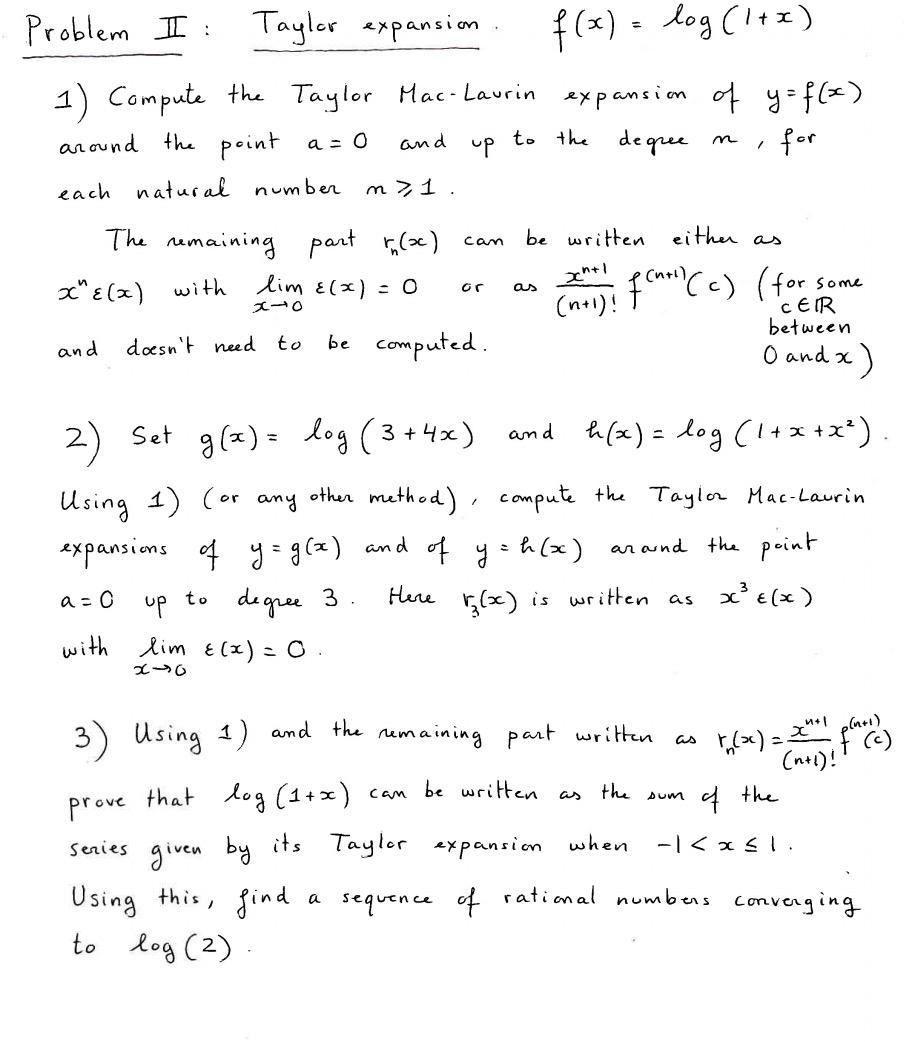 Problem II : Taylor expansion. f(x) = log(1+x)
1) Compute the Taylor Mac-Laurin expansion of y=f(x)
around the point a=0 and up to the degree n, for
each natural number n ⩾ 1.
The remaining part rₙ(x) can be written either as
xⁿε(x) with lim_{x→0} ε(x) = 0 or as x^{n+1}/(n+1)! f^{(n+1)}(c) (for some c∈ℝ between 0 and x)
and doesn't need to be computed.
2) Set g(x) = log(3+4x) and h(x) = log(1+x+x²).
Using 1) (or any other method), compute the Taylor Mac-Laurin
expansions of y=g(x) and of y=h(x) around the point
a=0 up to degree 3. Here r₃(x) is written as x³ε(x)
with lim_{x→0} ε(x) = 0.
3) Using 1) and the remaining part written as rₙ(x) = x^{n+1}/(n+1)! f^{(n+1)}(c)
prove that log(1+x) can be written as the sum of the
series given by its Taylor expansion when -1 < x ≤ 1.
Using this, find a sequence of rational numbers converging
to log(2).